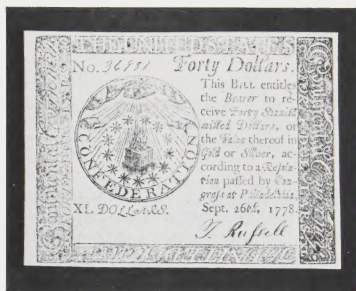 THE UNITED STATES
No. 36981 Forty Dollars.
This BILL entitles
the Bearer to re-
ceive Forty Spanish
milled Dollars, or
the Value thereof in
Gold or Silver, ac-
cording to a Resolu-
tion passed by Con-
gress at Philadelphia,
Sept. 26th, 1778.
CONFEDERATION
XL DOLLARS.